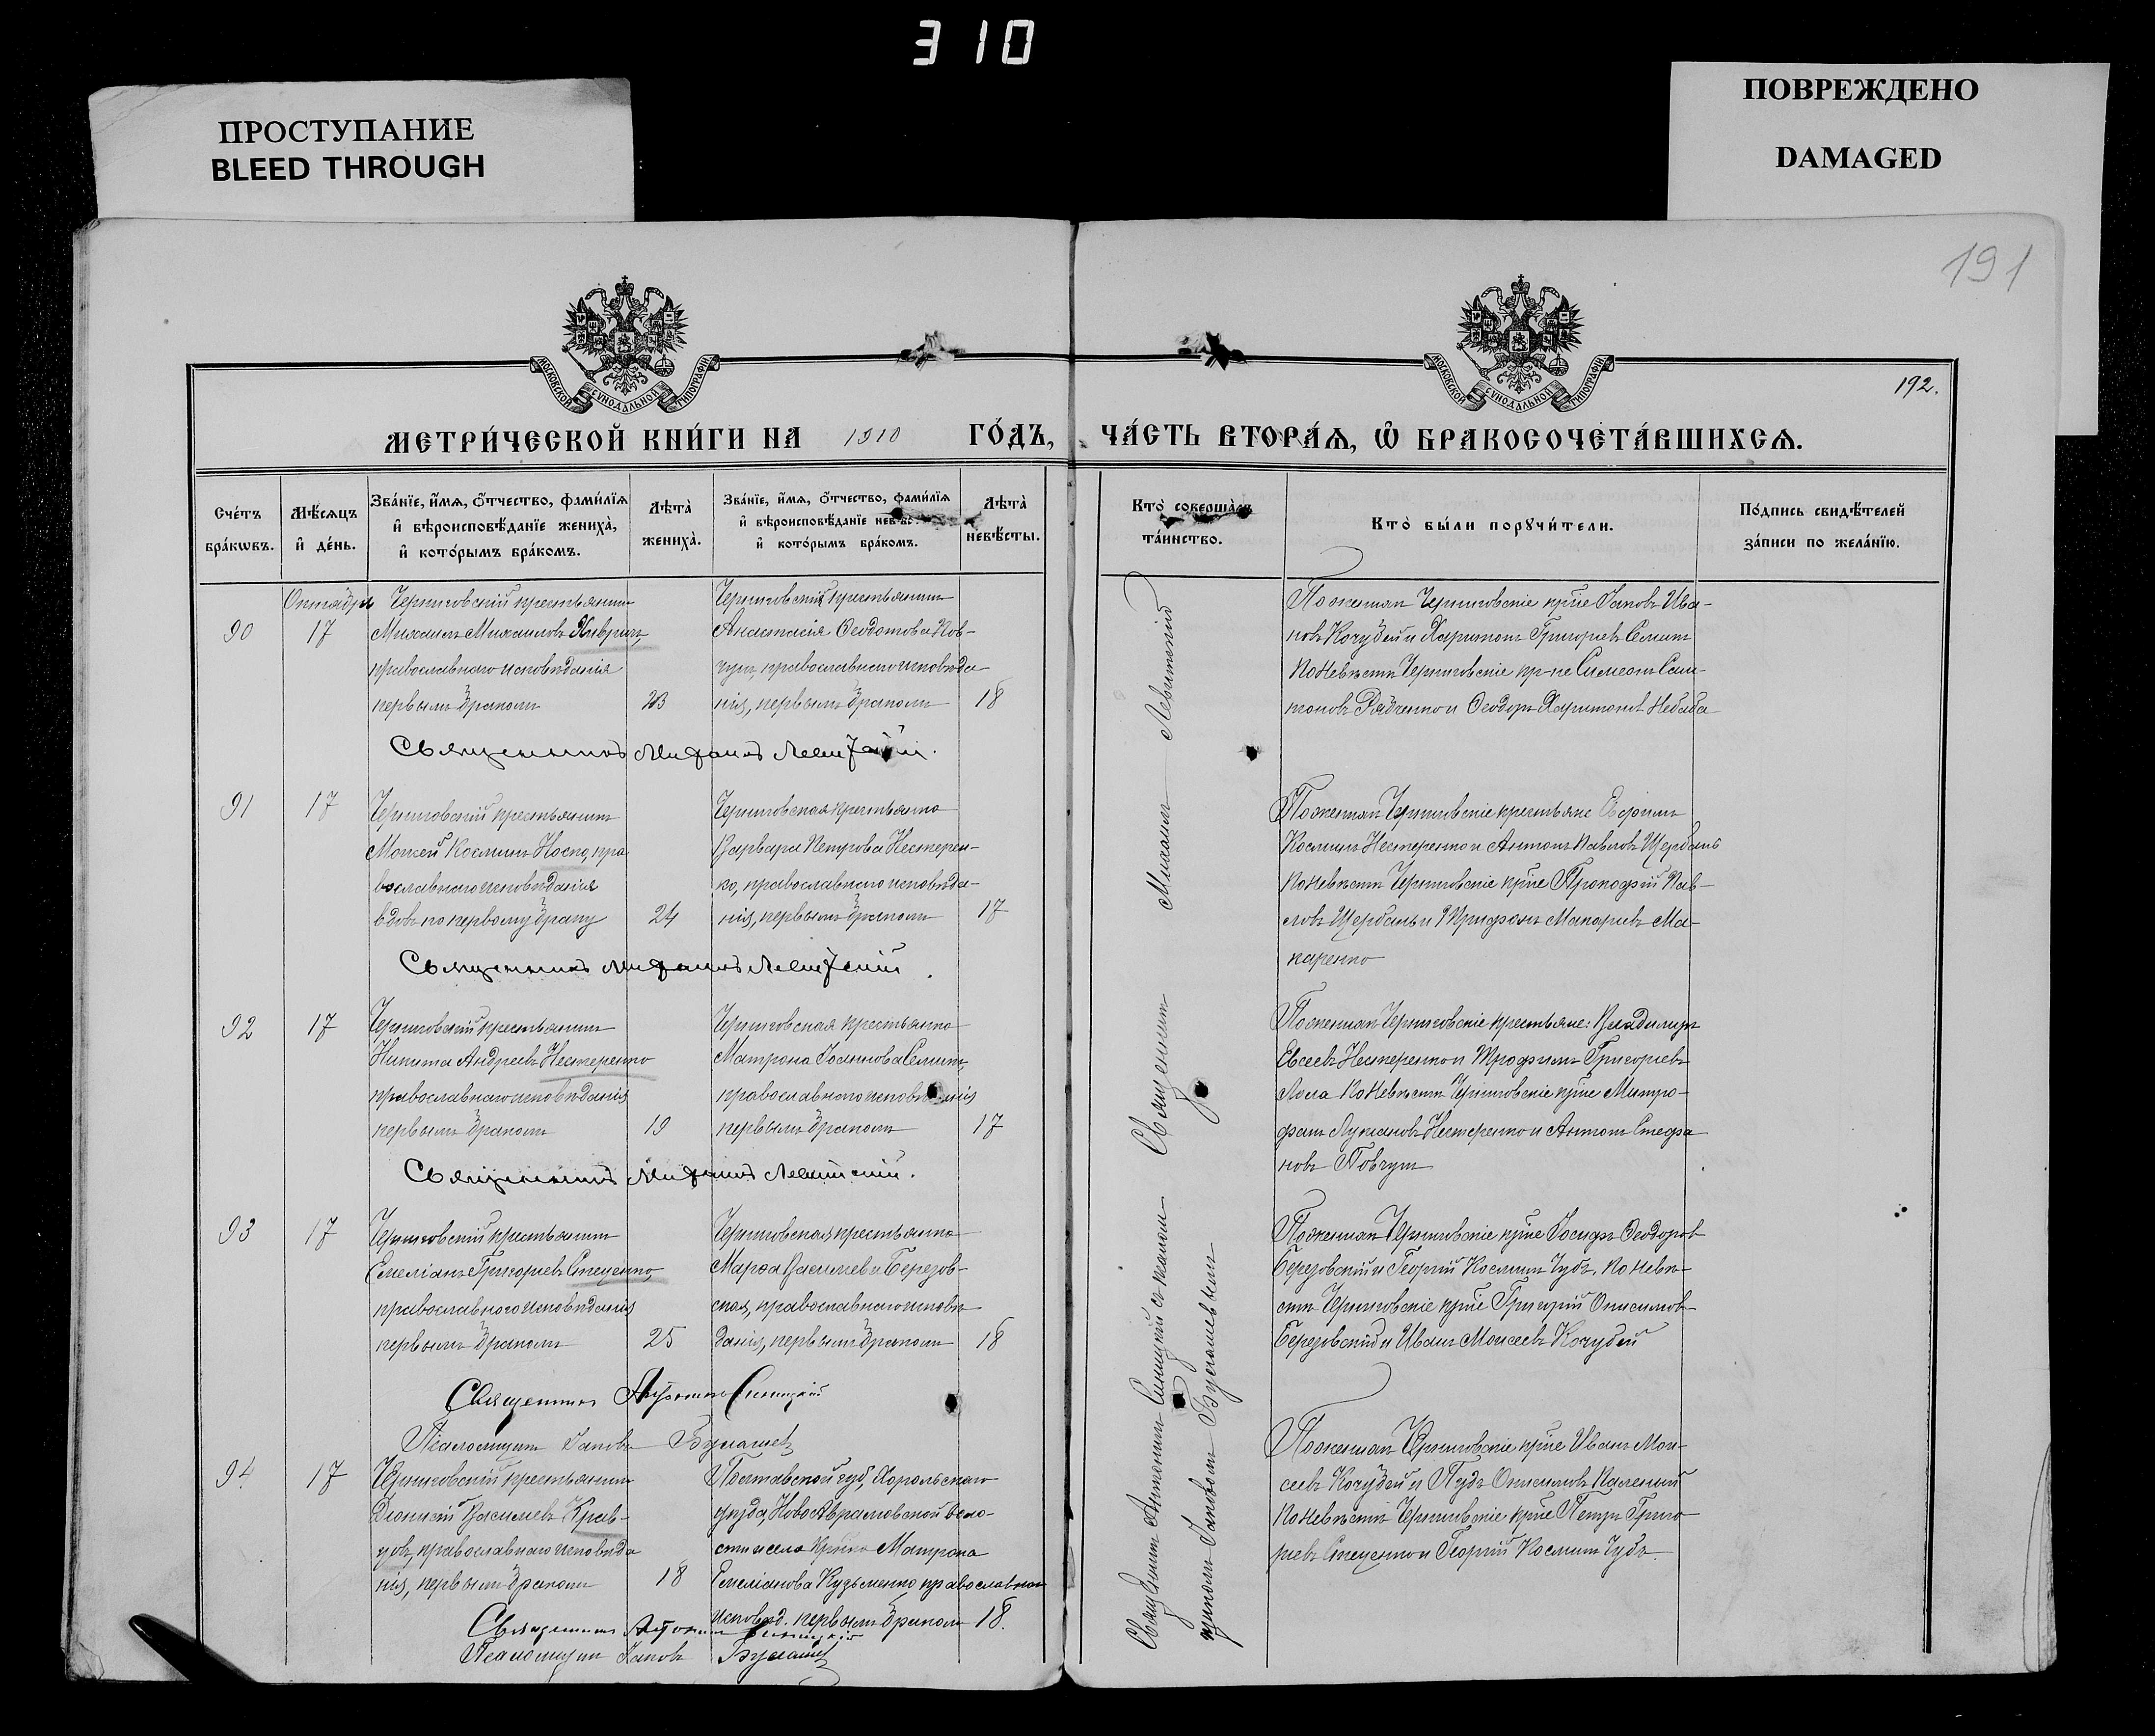 310
ПРОСТУПАНИЕ
BLEED THROUGH
ПОВРЕЖДЕНО
DAMAGED
191
192.
МОСКОВСКОЙ СѴНОДАЛЬНОЙ ТИПОГРАФІИ
МОСКОВСКОЙ СѴНОДАЛЬНОЙ ТИПОГРАФІИ
МЕТРИ́ЧЕСКОЙ КНИ́ГИ НА 1910 ГО́ДЪ,
ЧА́СТЬ ВТОРА́Я, Ѡ҆ БРАКОСОЧЕТА́ВШИХСЯ.
Сче́тъ
бра́кѡвъ.
Мѣ́сяцъ
и҆ де́нь.
Зва́нїе, и҆́мя, ѻ҆́тчество, фами́лїя
и҆ вѣроисповѣ́данїе жениха̀,
и҆ кото́рымъ бра́комъ.
Лѣта̀
жениха̀.
Зва́нїе, и҆́мя, ѻ҆́тчество, фами́лїя
и҆ вѣроисповѣ́данїе невѣ́с
и҆ кото́рымъ бра́комъ.
Лѣта̀
невѣ́сты.
Кто̀ соверша́лъ
та́инство.
Кто̀ бы́ли порꙋчи́тели.
По́дпись свидѣ́телей
за́писи по жела́нїю.
Октября
90
17
Черниговскій крестьянинъ
Михаилъ Михаиловъ Хивричъ
православнаго исповѣданія
первымъ бракомъ
23
Черниговскій крестьянинъ
Анастасія Ѳеодотова Пов-
чунъ, православнаго исповѣда-
нія, первымъ бракомъ
18
Поженихѣ Черниговскіе кр-не Іаковъ Ива-
новъ Кочубей и Харитонъ Григорьевъ
Поневѣстѣ Черниговскіе кр-не Симеонъ Сам-
соновъ Рябченко и Ѳеодоръ Харитоновъ Небаба
Священникъ Михаилъ Левитскій.
91
17
Черниговскій крестьянинъ
Моисей Косминъ Носко, пра
вославнаго исповѣданія
вдовъ по первому браку
24
Черниговская крестьянка
Варвара Петрова Нестерен-
ко, православнаго исповѣда-
нія, первымъ бракомъ
17
Поженихѣ Черниговскіе крестьяне Ефимъ
Косминъ Нестеренко и Антонъ Павловъ Щербань
Поневѣстѣ Черниговскіе кр-не Прокофій Пав-
ловъ Щербань и Трифонъ Макарьевъ Ма-
каренко
Священникъ Михаилъ Левитскій.
92
17
Черниговскій крестьянинъ
Никита Андреевъ Нестеренко
православнаго исповѣданія
первымъ бракомъ
19
Черниговская крестьянка
Матрона Іоаннова
православнаго исповѣданія
первымъ бракомъ
17
Поженихѣ Черниговскіе крестьяне: Владиміръ
Евсеевъ Нестеренко и Трофимъ Григорьевъ
Лола Поневѣстѣ Черниговскіе кр-не Митро-
фанъ Лукіановъ Нестеренко и Антонъ Стефа
новъ Повчунъ
Священникъ Михаилъ Левитскій.
93
17
Черниговскій крестьянинъ
Емеліанъ Григорьевъ Стеценко
православнаго исповѣданія
первымъ бракомъ
25
Черниговская крестьянка
Марѳа Васильева Березов-
ская, православнаго исповѣ-
данія, первымъ бракомъ
18
Поженихѣ Черниговскіе кр-не Іосифъ Ѳеодоровъ
Березовскій и Георгій Косминъ Чубъ. Поневѣ-
стѣ Черниговскіе кр-не Григорій Онисимовъ
Березовскій и Иванъ Моисеевъ Кочубей
Священникъ Антоній Синицкій
Псаломщикъ Іаковъ Бугашевъ
94.
17
Черниговскій крестьянинъ
Діонисій Васильевъ Крав-
цовъ, православнаго исповѣда
нія, первымъ бракомъ
18
Полтавской губ, Хорольскаго
уѣзда, Новоаврамовской воло-
сти и села кр-нка Матрона
Емеліанова Кузьменко православнаго
исповѣд. первымъ бракомъ
18.
Поженихѣ Черниговскіе кр-не Иванъ Мои-
сеевъ Кочубей и Пудъ Онисимовъ
Поневѣстѣ Черниговскіе кр-не Петръ Григо
рьевъ Стеценко и Георгій Косминъ Чубъ.
Священникъ Антоній Синицкій
Псаломщикъ Іаковъ Бугашевъ
Священникъ Михаилъ Левитскій
Священникъ Антоній Синицкій съ псалом-
щикомъ Іаковомъ Бугашевымъ